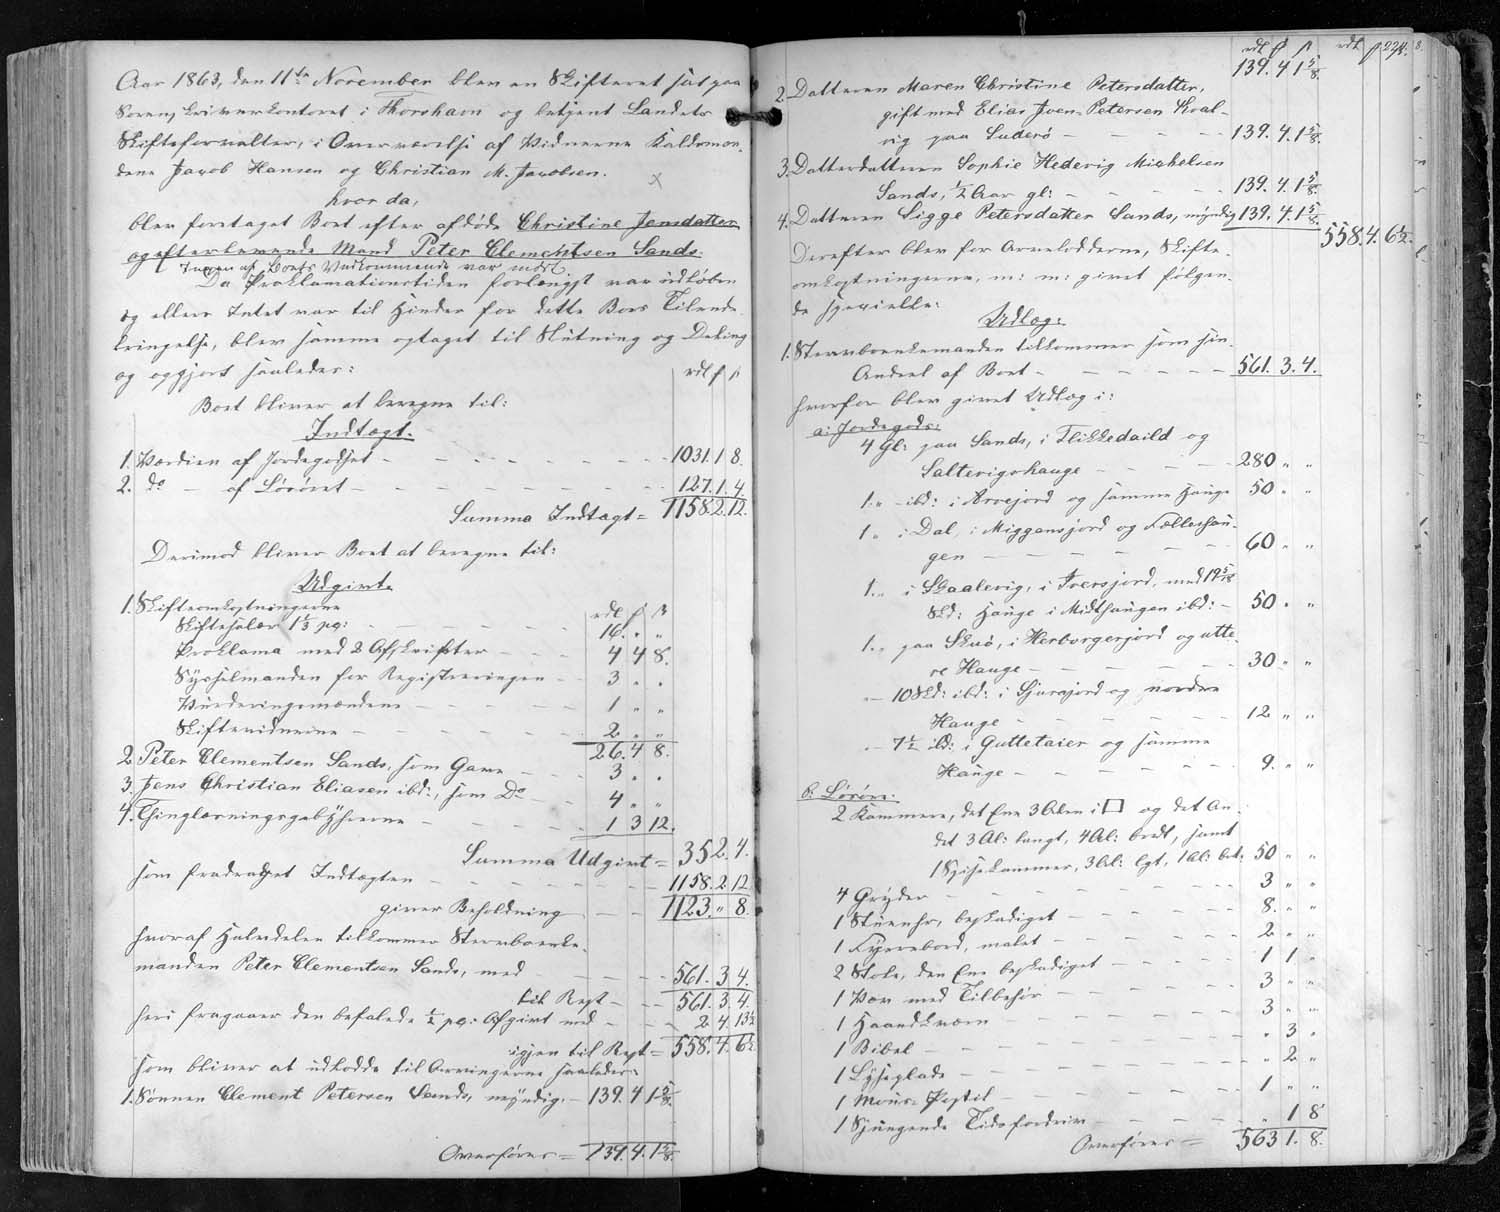 Aar 1863, den 11te November blev en Skifteret sat paa
Sorenskriverkontoret i Thorshavn og betjent Landets
Skifteforvalter, i Overværelse af Vidnerne Kaldsmæn-
dene Jacob Hansen og Christian M. Jacobsen.
hvor da,
blev foretaget Boet efter afdøde Christine Jensdatter
og efterlevende Mand Peter Clementsen Sands.
Ingen af Boets Vedkommende var mødt.
Da Proklamationstiden forlængst var udløben
og ellers Intet var til Hinder for dette Boes Tilende-
bringelse, blev samme optaget til Slutning og Deling
og opgjort saaledes:
rdl ʄ ß
Boet bliver at beregne til:
Indtægt.
1. Værdien af Jordegodset - - - 1031. 1 8.
2. do - af Løsøret - - - 127. 1. 4.
Summa Indtægt = 1158. 2. 12.
Derimod bliver Boet at beregne til:
Udgivt.
1. Skifteomkostningerne
rdl ʄ ß
Skiftesalær 1⅓ pc: - - - 16. " "
Proklama med 2 Afskrifter - - - 4 4 8.
Sysselmanden for Registreringen - - 3 " "
Vurderingsmændene - - - 1 " "
Skiftevidnerne - - - 2 " "
26. 4 8.
2. Peter Clementsen Sands, som Gave - - 3 " "
3. Jens Christian Eliasen ibd:, som Do - 4 " "
4. Thinglæsningsgebyhrerne - - - 1 3 12.
Summa Udgivt = 35 2. 4.
som fradraget Indtægten - - - 1158. 2 12
giver Beholdning - - 1123. " 8.
hvoraf Halvdelen tilkommer Stervboenke-
manden Peter Clementsen Sands, med - - - 561. 3 4.
til Rest - - 561. 3 4.
heri fragaaer den befalede ½ pc: Afgivt med - - - 2 4. 13½
igjen til Rest = 558. 4. 6½.
som bliver at udlodde til Arvingerne saaledes:
1. Sønnen Clement Petersen Sands, myndig, - 139. 4 1⅝.
Overføres = 139. 4. 1⅝.
224.
rdl ʄ ß rdl ʄ ß
139. 4 1⅝.
2. Datteren Maren Christine Petersdatter,
gift med Elias Joen Petersen Hval-
vig paa Suderø - - - - 139. 4. 1⅝.
3. Datterdatteren Sophie Hedevig Michelsen
Sands, ½ Aar gl: - - - - 139. 4. 1⅝.
4. Datteren Sigge Petersdatter Sands, myndig 139. 4. 1⅝.
558. 4. 6½.
Derefter blev for Arvelodderne, Skifte-
omkostningerne, m: m: givet følgen-
de specielle:
Udlæg:
1. Stervboenkemanden tilkommer som sin
Andeel af Boet - - - - 561. 3. 4.
hvorfor blev givet Udlæg i:
a: Jordegods:
4 Gl: paa Sands, i Flikkedaild og
Saltevigshauge - - - - 280 " "
1. " ibd: i Arvejord og samme Hauge 50 " "
1 " i Dal, i Miggansjord og Fælleshau-
gen - - - - 60 " "
1. " i Skaalevig, i Tversjord, med 19⅝
Skd: Hauge i Midthaugen ibd: - 50 " "
1. " paa Skuø, i Herborgerjord og ytte-
re Hauge - - - - 30 " "
" - 10 Skd: ibd: i Sjursjord og nordre
Hauge - - - - 12 " "
" - 7½ ibd: i Guttetaier og samme
Hauge - - - - 9. " "
b: Løsøre:
2 Kammere, det Ene 3 Alen i □ og det An-
det 3 Al: langt, 4 Al: bredt, samt
1 Spisekammer, 3 Al: lgt, 1 Al: bdt: 50 " "
4 Gryder - - - - 3 " "
1 Stueuhr, beskadiget - - - - 8. " "
1 Fyrrebord, malet - - - - 2 " "
2 Stole, den Ene beskadiget - - - - 1 1 "
1 Væv med Tilbehør - - - - 3 " "
1 Haandkværn - - - - 3 " "
1 Bibel - - - - " 3 "
1 Lyseplade - - - - " 2 "
1 Postil - - - - 1 " "
1 Sjungende Tidsfordriv - - - - " 1 8
Overføres = 563 1. 8.